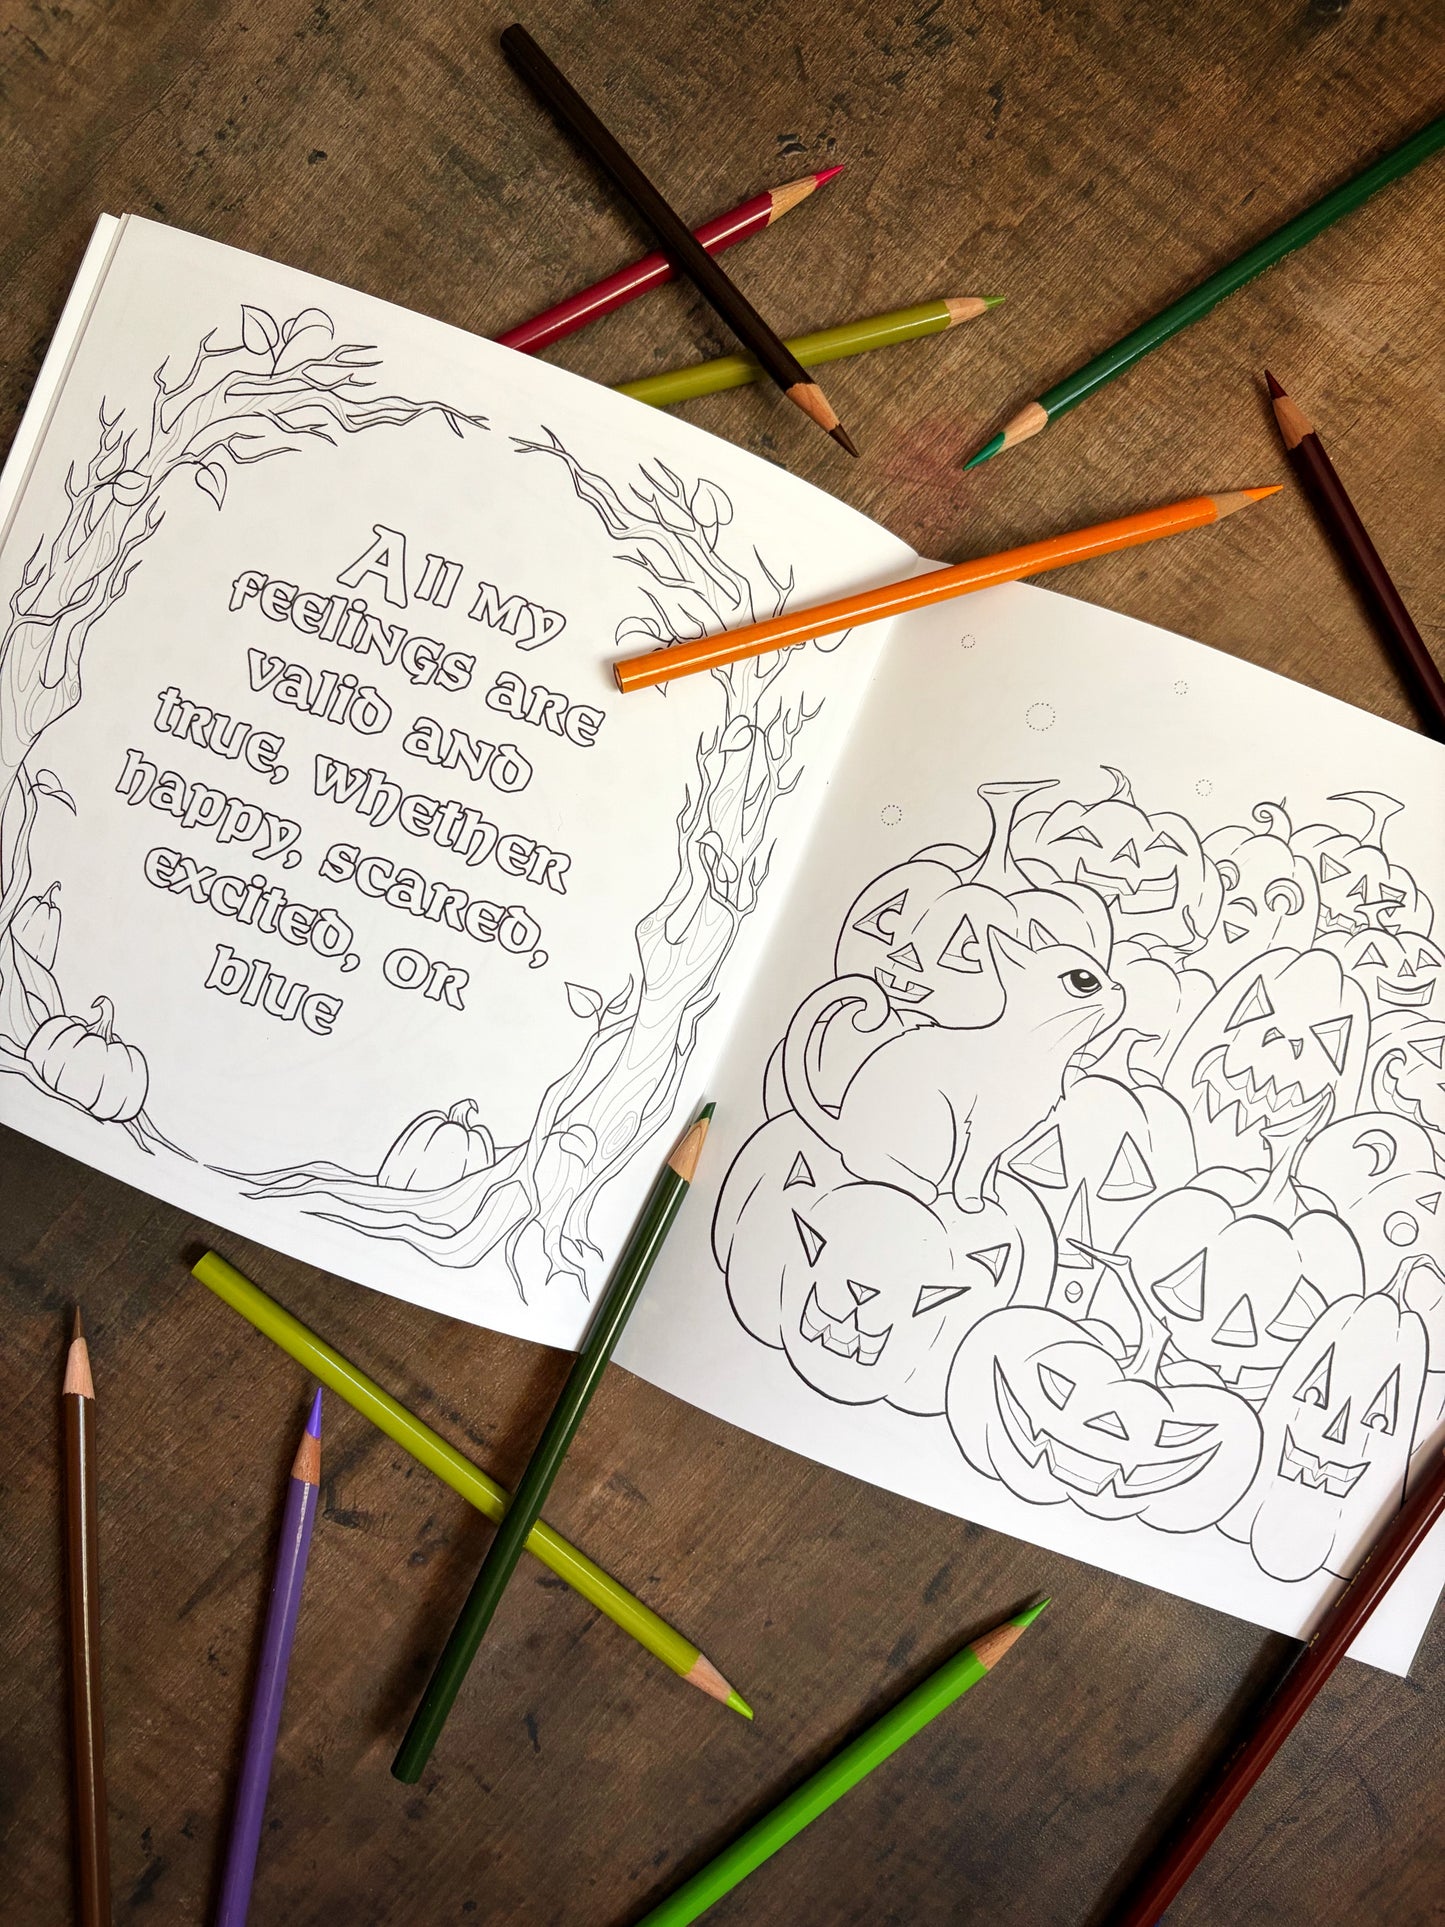 All my
feelings are
valid and
true, whether
happy, scared,
excited, or
blue